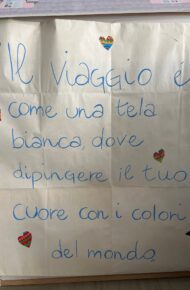 Il viaggio é
come una tela
bianca, dove
dipingere il tuo
cuore con i colori
del mondo